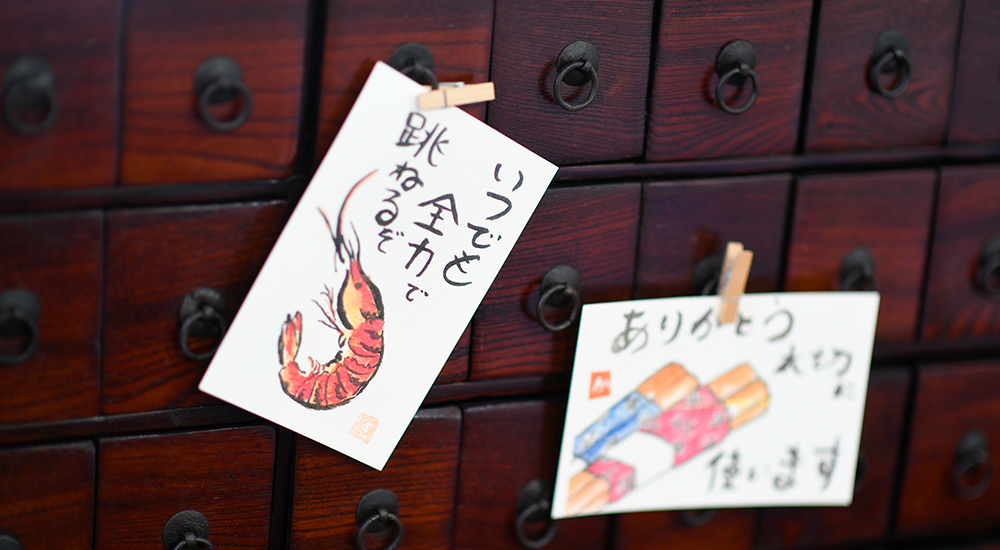 いつでも
全力で
跳ねるぞ
ありがとう
大切に
使います
か